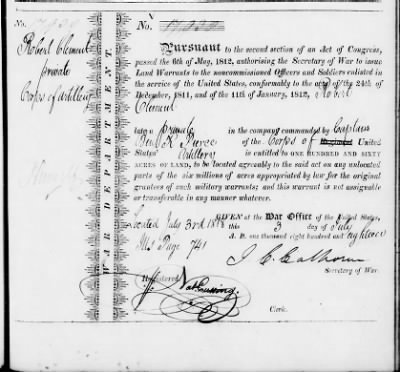 No.
Robert Clement
private
Corps of Artillery
WAR DEPARTMENT.
No.
PURSUANT to the second section of an Act of Congress,
passed the 6th of May, 1812, authorising the Secretary of War to issue
Land Warrants to the noncommissioned Officers and Soldiers enlisted in
the service of the United States, conformably to the acts of the 24th of
December, 1811, and of the 11th of January, 1812, Robert
Clement
late a private in the company commanded by Captain
Benj K. Pierce of the Corps of United
States Artillery
is entitled to ONE HUNDRED AND SIXTY
ACRES OF LAND, to be located agreeably to the said act on any unlocated
parts of the six millions of acres appropriated by law for the original
grantees of such military warrants; and this warrant is not assignable
or transferable in any manner whatever.
GIVEN at the War Office of the United States,
Located July 3rd 1818 this 3 day of July
A. D. one thousand eight hundred and eighteen
Page 741
J. C. Calhoun
Secretary of War.
Registered
Nath Cutting
Clerk.